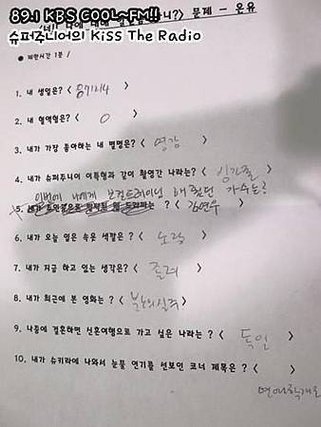 89.1 KBS COOL~FM!!
슈퍼주니어의 Kiss The Radio
문제 - 온유
● 제한시간 1분 /
1. 내 생일은? <
2. 내 혈액형은? < O >
3. 내가 가장 좋아하는 내 별명은? < 영감 >
4. 내가 슈퍼주니어 이특형과 같이 촬영간 나라는? < 싱가폴 >
이번에 나에게 보컬트레이닝 해줬던 가수는?
5. ? < 김연우 >
6. 내가 오늘 입은 속옷 색깔은? < 노랑 >
7. 내가 지금 하고 있는 생각은? < 졸려 >
8. 내가 최근에 본 영화는? < >
9. 나중에 결혼하면 신혼여행으로 가고 싶은 나라는? < 독일 >
10. 내가 슈키라에 나와서 눈물 연기를 선보인 코너 제목은? < >